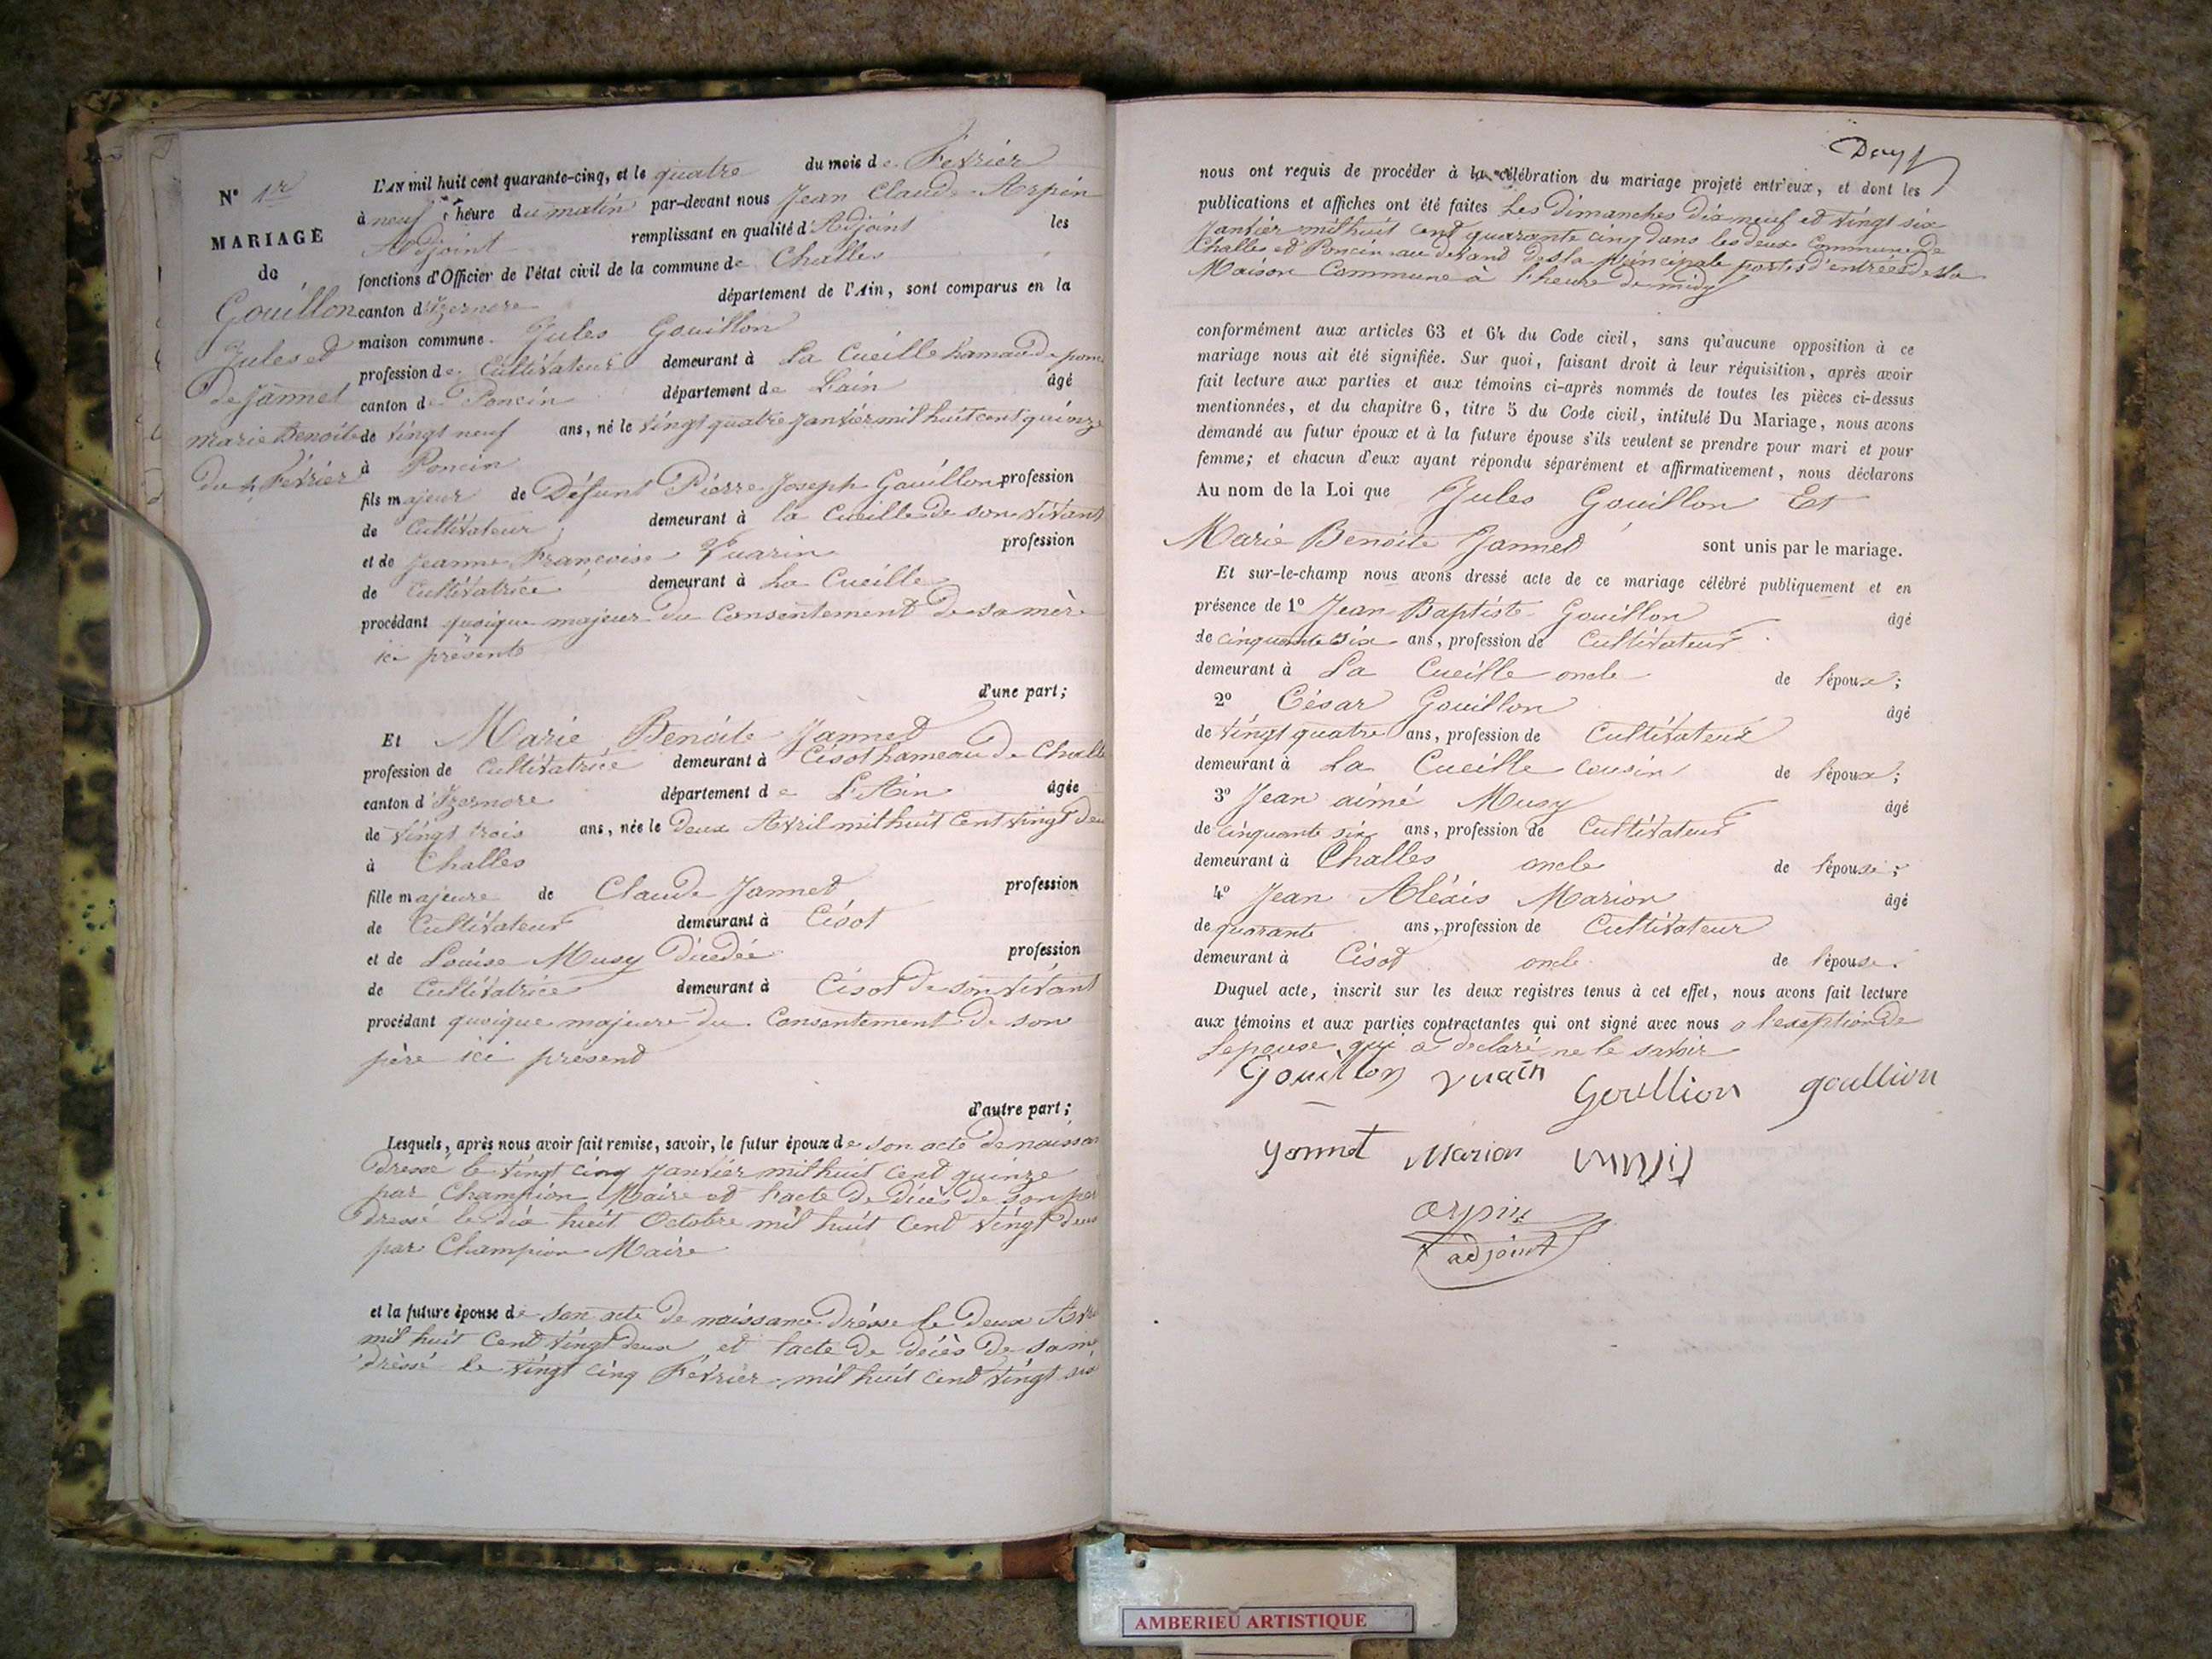 N° 1er
MARIAGE
de
Gouillon
Jules et
de Jannet
marie Benoite
du 4 Février
L'AN mil huit cent quarante-cinq, et le quatre du mois de Fevrier
à neuf heure du matin par-devant nous Jean Claude Arpin
Adjoint remplissant en qualité d'Adjoint les
fonctions d'Officier de l'état civil de la commune de Challes
canton d'Izernore département de l'Ain, sont comparus en la
maison commune. Jules Gouillon
profession de Cultivateur demeurant à La Cueille hamau de
canton de Poncin département de Lain âgé
de vingt neuf ans, né le vingt quatre janvier mil huit cent quinze
à Poncin
fils majeur de Défunt Pierre Joseph Gouillon profession
de Cultivateur demeurant à la Cueille de son vivant
et de Jeanne Françoise Vuarin profession
de Cultivatrice demeurant à La Cueille
procédant quoique majeur du Consentement de sa mère
ici présente
d'une part;
Et Marie Benoite Jannet
profession de Cultivatrice demeurant à Cisot hameau de Challe
canton d'Izernore département de L'Ain âgée
de vingt trois ans, née le deux Avril mil huit Cent vingt deu
à Challes
fille majeure de Claude Jannet profession
de Cultivateur demeurant à Cisot
et de Louise Musy décédée profession
de Cultivatrice demeurant à Cisot de son vivant
procédant quoique majeure du Consentement de son
père ici présend
d'autre part;
Lesquels, après nous avoir fait remise, savoir, le futur époux de son acte de naissan
dressé le vingt cinq janvier mil huit cent quinze
par Champion Maire et l'acte de décès de son per
dressé le dix huit Octobre mil huit Cend vingt deux
par Champion Maire
et la future épouse de son acte de naissance dressé le deux Avri
mil huit Cend vingt deux et lacte de décès de sa
dréssé le vingt cinq Février mil huit cend vingt six
nous ont requis de procéder à la célébration du mariage projeté entr'eux, et dont les
publications et affiches ont été faites Les Dimanches dix neuf et vingt six
Janvier mil huit Cent quarante cinq dans les deux Commune de
Challes et Poncin au devand de la principale portes d'entrées de la
Maison Commune à l'heure de midy
conformément aux articles 63 et 64 du Code civil, sans qu'aucune opposition à ce
mariage nous ait été signifiée. Sur quoi, faisant droit à leur réquisition, après avoir
fait lecture aux parties et aux témoins ci-après nommés de toutes les pièces ci-dessus
mentionnées, et du chapitre 6, titre 5 du Code civil, intitulé Du Mariage, nous avons
demandé au futur époux et à la future épouse s'ils veulent se prendre pour mari et pour
femme; et chacun d'eux ayant répondu séparément et affirmativement, nous déclarons
Au nom de la Loi que Jules Gouillon Et
Marie Benoite Jannet sont unis par le mariage.
Et sur-le-champ nous avons dressé acte de ce mariage célébré publiquement et en
présence de 1° Jean Baptiste Gouillon âgé
de cinquante six ans, profession de Cultivateur
demeurant à La Cueille oncle de l'époux;
2° César Gouillon âgé
de vingt quatre ans, profession de Cultivateur
demeurant à La Cueille cousin de l'époux;
3° Jean aimé Musy âgé
de cinquante six ans, profession de Cultivateur
demeurant à Challes oncle de l'épouse;
4° Jean Aléxis Marion âgé
de quarante ans, profession de Cultivateur
demeurant à Cisot oncle de l'épouse.
Duquel acte, inscrit sur les deux registres tenus à cet effet, nous avons fait lecture
aux témoins et aux parties contractantes qui ont signé avec nous a l'exeption de
Lepouse qui a déclaré ne le savoir
Gouillon vuarin Goullion goullion
Jannet Marion
arpin
adjoint
AMBERIEU ARTISTIQUE